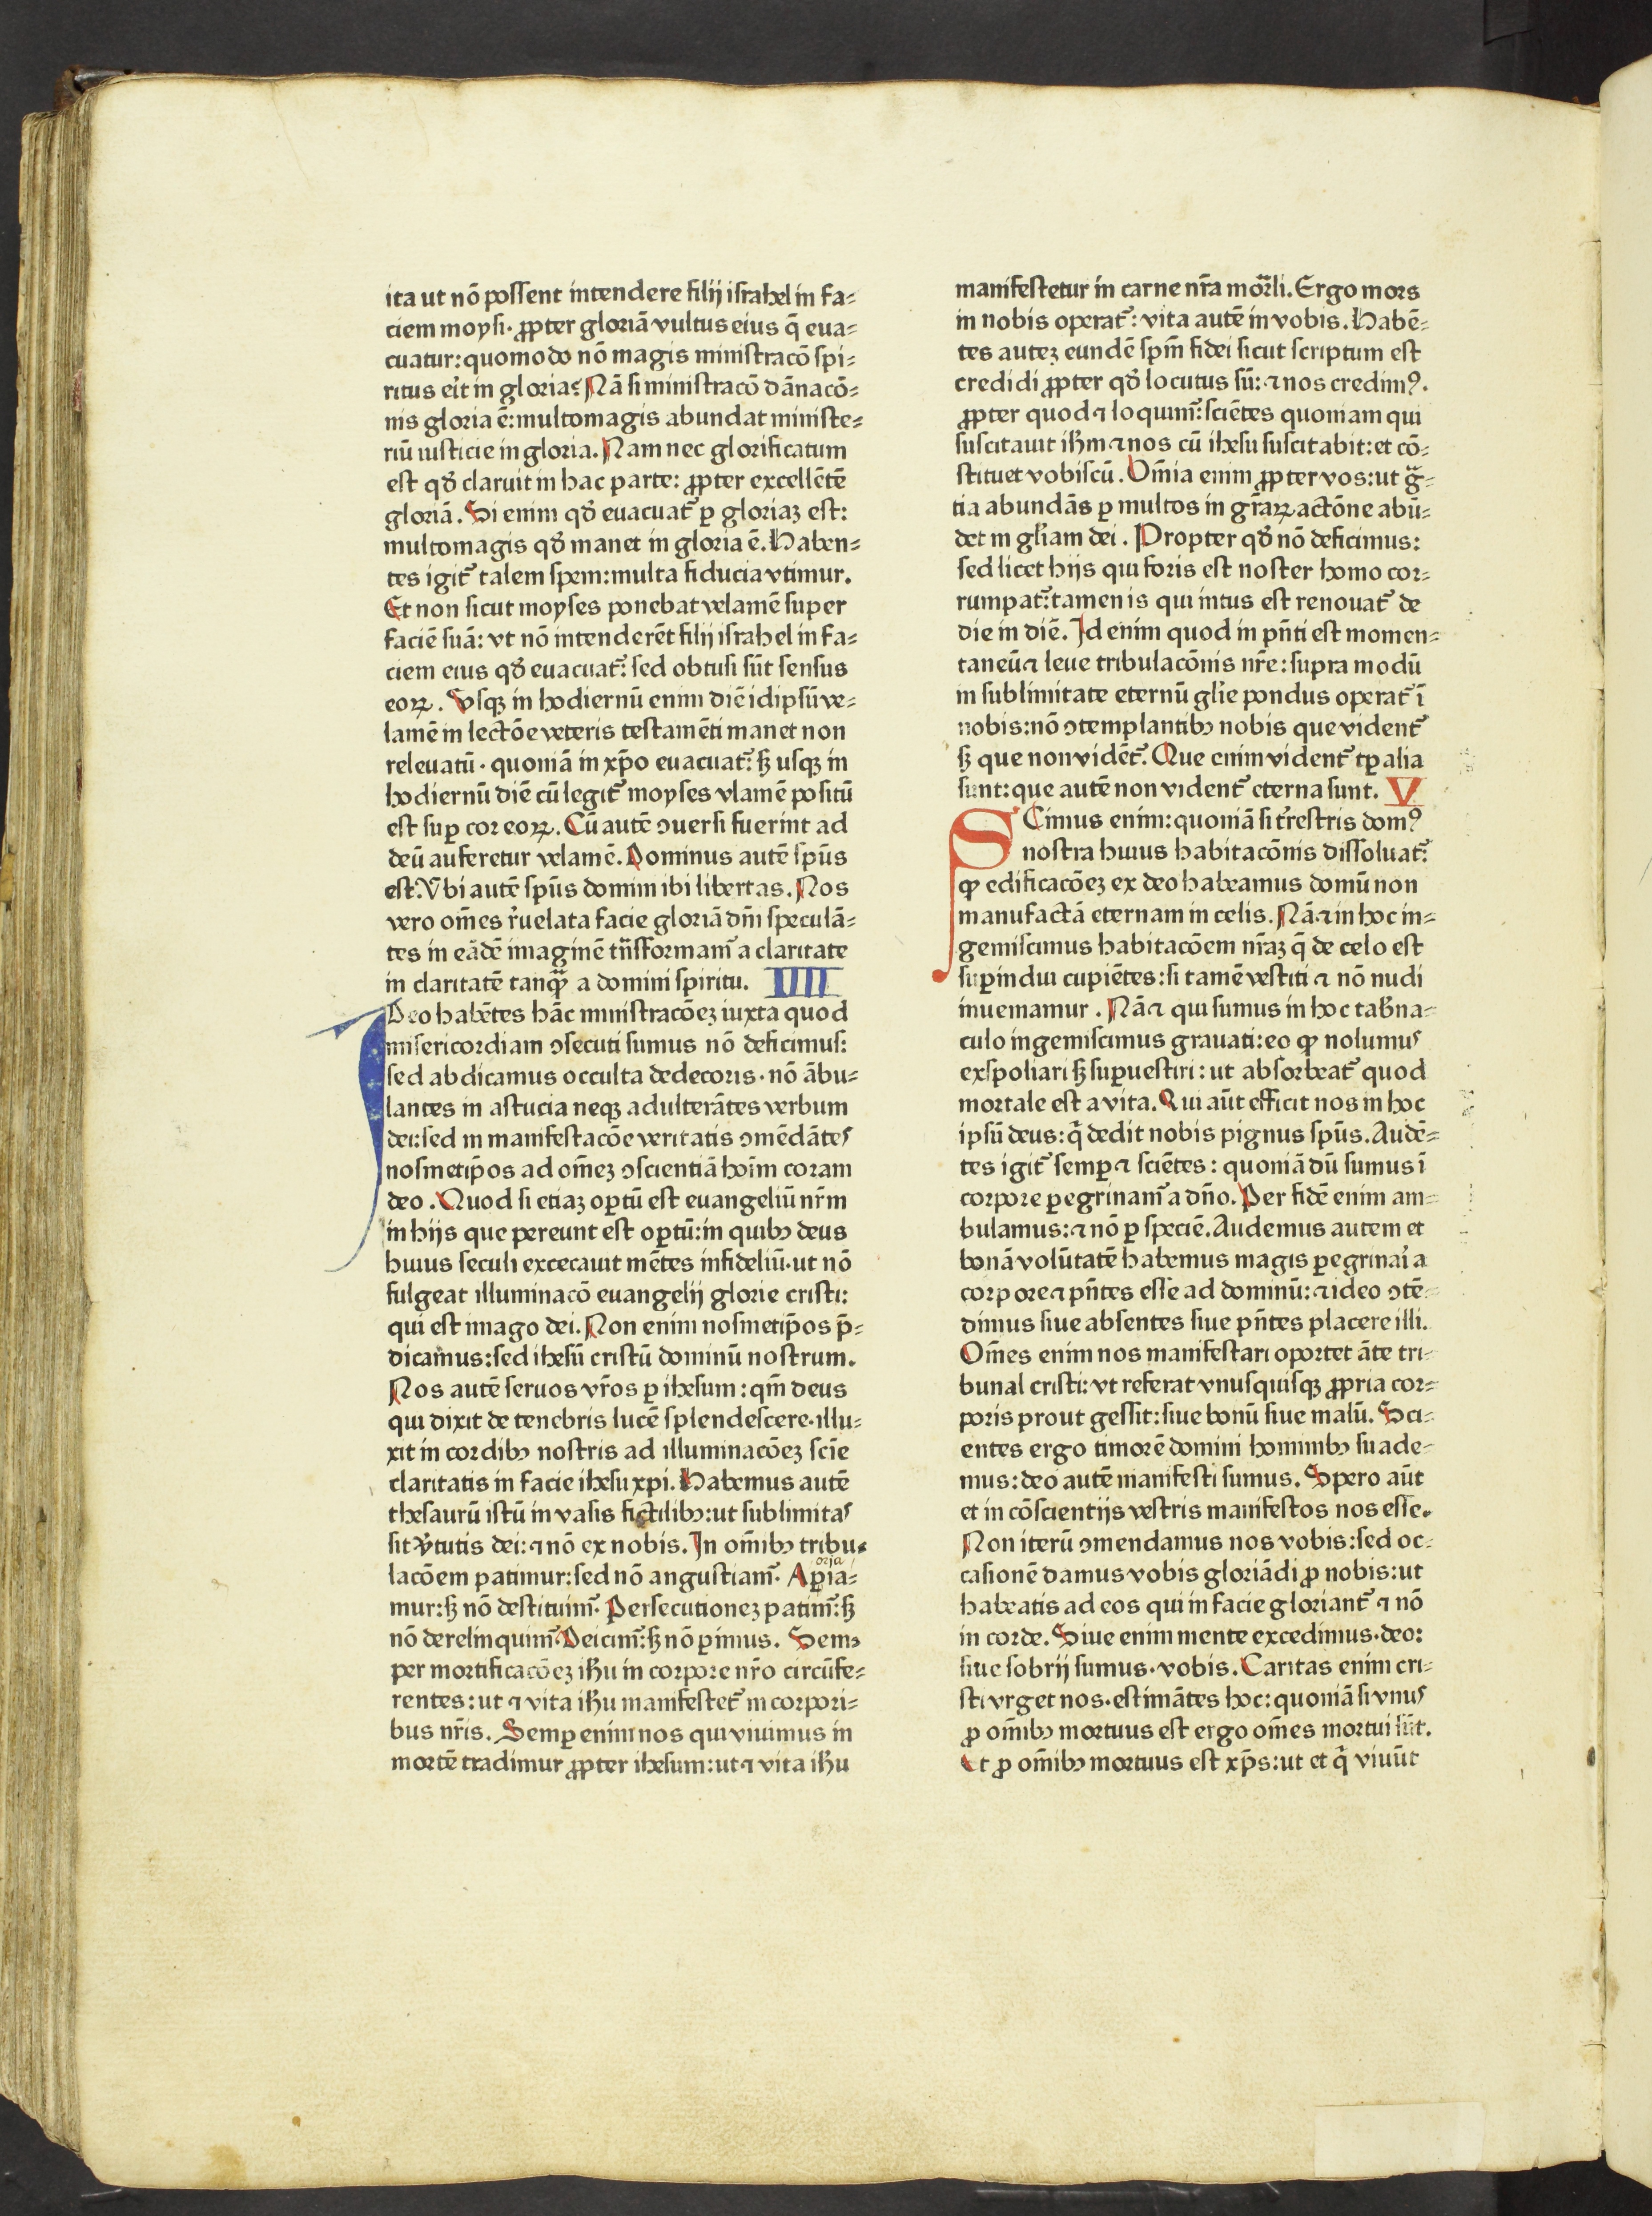 ita ut nō possent intendere filij israhel in fa⸗
ciem moysi· ꝓpter gloriā vultus eius q̄ eua⸗
cuatur: quomodo nō magis ministracō spi⸗
ritus eīt in gloria? Nā si ministracō dānacō⸗
nis gloria ē: multomagis abundat ministe⸗
riū iusticie in gloria. Nam nec glorificatum
est qđ claruit in hac parte: ꝓpter excellētē
gloriā. Si enim qđ euacuat᷑ ꝑ gloriaȝ est:
multomagis qđ manet in gloria ē. Haben⸗
tes igit᷑ talem spem: multa fiducia vtimur.
Et non sicut moyses ponebat velamē super
faciē suā: vt nō intenderēt filij israhel in fa⸗
ciem eius qđ euacuat᷑: sed obtusi sūt sensus
eoꝝ. Vsqȝ in hodiernū enim diē idipsū ve⸗
lamē in lectōe veteris testamēti manet non
reuelatū· quoniā in xp̄o euacuat᷑: sȝ usqȝ in
hodiernū diē cū legit᷑ moyses vlamē positū
est suꝑ cor eoꝝ. Cū autē ꝯuersi fuerint ad
deū auferetur velamē. Dominus autē spūs
est: Vbi autē spūs domini ibi libertas. Nos
vero om̄es r̓uelata facie gloriā dn̄i speculā⸗
tes in eādē imaginē tn̄sformam᷑ a claritate
in claritatē tanqȝ a domini spiritu. IIII
Deo habētes hāc ministracōeȝ iuxta quod
misericordiam ꝯsecuti sumus nō deficimus:
sed abdicamus occulta dedecoris· nō ābu⸗
lantes in astucia neqȝ adulterātes verbum
dei: sed in manifestacōe veritatis ꝯmēdātes
nosmetip̄os ad om̄eȝ ꝯscientiā hoīm coram
deo. Quod si etiaȝ oꝑtū est euangeliū nr̄m
in hijs que pereunt est oꝑtū: in quibꝫ deus
huius seculi excecauit mētes infideliū· ut nō
fulgeat illuminacō euangelij glorie cristi:
qui est imago dei. Non enim nosmetip̄os p̄⸗
dicamus: sed ihesū cristū dominū nostrum.
Nos autē seruos vr̄os ꝑ ihesum: qm̄ deus
qui dixit de tenebris lucē splendescere· illu⸗
xit in cordibꝫ nostris ad illuminacōeȝ scīe
claritatis in facie ihesu xpi. Habemus autē
thesaurū istū in vasis fictilibꝫ: ut sublimitas
sit v̓tutis dei: ⁊ nō ex nobis. In om̄ibꝫ tribu⸗
lacōem patimur: sed nō angustiam᷑· Aꝑia⸗
oria
mur: sȝ nō destituim᷑· Persecutioneȝ patim᷑: sȝ
nō derelinquim᷑· Deicim᷑: sȝ nō ꝑimus. Sem⸗
per mortificacōeȝ ihu in corpore nr̄o circūfe⸗
rentes: ut ⁊ vita ihu manifestet᷑ in corpori⸗
bus nr̄is. Semꝑ enim nos qui viuimus in
mortē tradimur ꝓpter ihesum: ut ⁊ vita ihu
manifestetur in carne nr̄a mor̄li. Ergo mors
in nobis operat᷑: vita autē in vobis. Habē⸗
tes auteȝ eundē spm̄ fidei sicut scriptum est
credidi ꝓpter qđ locutus sū: ⁊ nos credimꝰ.
ꝓpter quod ⁊ loquim᷑: sciētes quoniam qui
suscitauit ihm̄ ⁊ nos cū ihesu suscitabit: et cō⸗
stituet vobiscū. Om̄ia enim ꝓpter vos: ut gͣ⸗
tia abundās ꝑ multos in gr̄aꝝ actōne abū⸗
det in gl̄iam dei. Propter qđ nō deficimus:
sed licet hijs qui foris est noster homo cor⸗
rumpat᷑: tamen is qui intus est renouat᷑ de
die in diē. Id enim quod in pn̄ti est momen⸗
taneū ⁊ leue tribulacōnis nr̄e: supra modū
in sublimitate eternū gl̄ie pondus operat᷑ ī
nobis: nō ꝯtemplantibꝫ nobis que vident᷑
sȝ que non vidēt᷑. Que enim vident᷑ tꝑalia
sunt: que autē non vident᷑ eterna sunt. V
SCimus enim: quoniā si tr̓restris domꝰ
nostra huius habitacōnis dissoluat᷑:
ꝙ edificacōeȝ ex deo habeamus domū non
manufactā eternam in celis. Nā ⁊ in hoc in⸗
gemiscimus habitacōem nr̄aȝ q̄ de celo est
suꝑindui cupiētes: si tamē vestiti ⁊ nō nudi
inueniamur. Nā ⁊ qui sumus in hoc tab̄na⸗
culo ingemiscimus grauati: eo ꝙ nolumus
exspoliari sȝ suꝑuestiri: ut absorbeat᷑ quod
mortale est a vita. Qui aūt efficit nos in hoc
ipsū deus: qͥ dedit nobis pignus spūs. Audē⸗
tes igit᷑ semꝑ ⁊ sciētes: quoniā dū sumus ī
corpore ꝑegrinam᷑ a dn̄o. Per fidē enim am⸗
bulamus: ⁊ nō ꝑ speciē. Audemus autem et
bonā volūtatē habemus magis ꝑegrinaī a
corpore ⁊ pn̄tes esse ad dominū: ⁊ ideo ꝯtē⸗
dimus siue absentes siue pn̄tes placere illi.
Om̄es enim nos manifestari oportet āte tri⸗
bunal cristi: vt referat vnusquisqȝ ꝓpria cor⸗
poris prout gessit: siue bonū siue malū. Sci⸗
entes ergo timorē domini hominibꝫ suade⸗
mus: deo autē manifesti sumus. Spero aūt
et in cōscientijs vestris manifestos nos esse.
Non iterū ꝯmendamus nos vobis: sed oc⸗
casionē damus vobis gloriādi ꝓ nobis: ut
habeatis ad eos qui in facie gloriant᷑ ⁊ nō
in corde. Siue enim mente excedimus· deo:
siue sobrij sumus· vobis. Caritas enim cri⸗
sti vrget nos· estimātes hoc: quoniā si vnus
ꝓ om̄ibꝫ mortuus est ergo om̄es mortui sūt.
Et ꝓ om̄ibꝫ mortuus est xp̄s: ut et qͥ viuūt